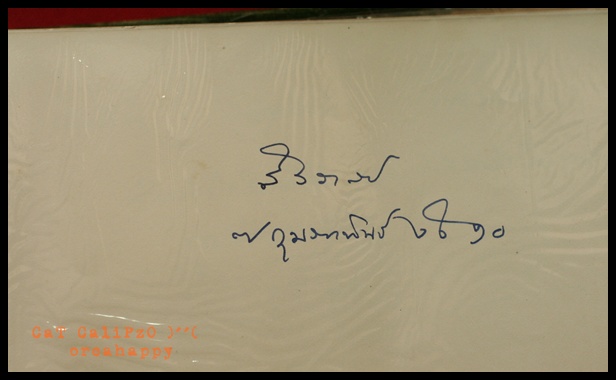 ๗ กุมภาพันธ์ ๒๕๑๐
CaT CallFzO )''(
oreahappy